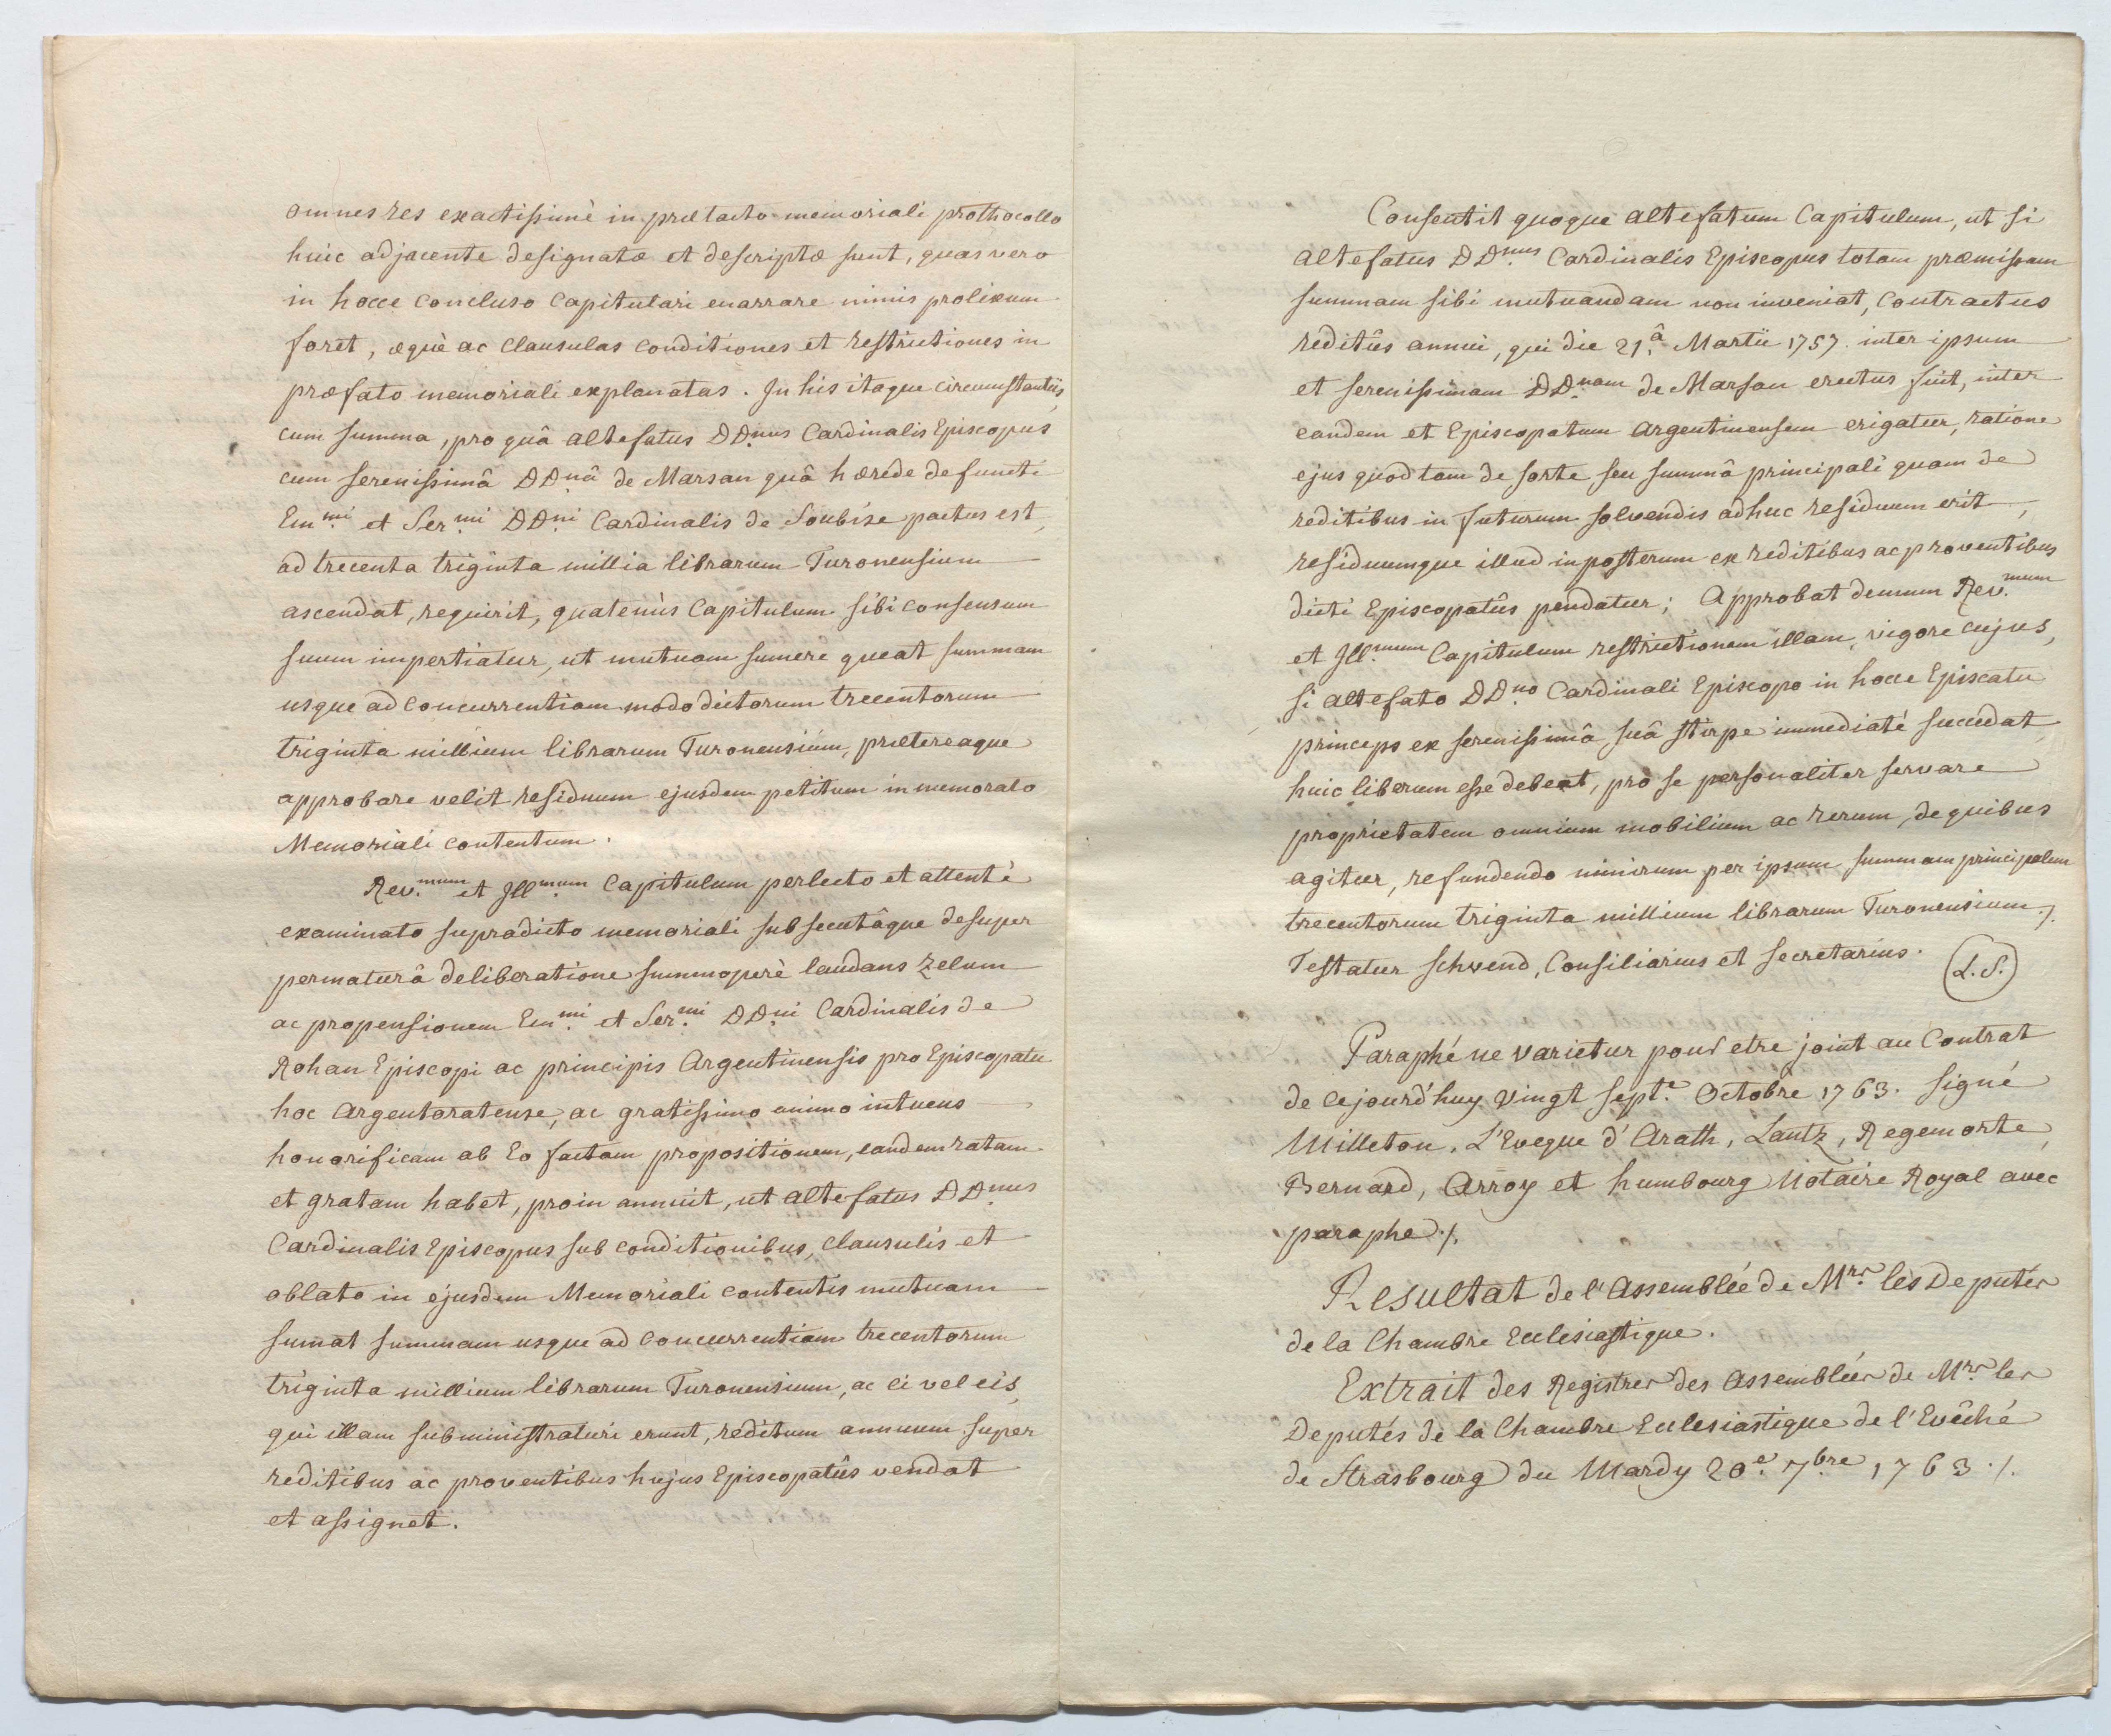 omnes res exactissimè in prætacto memoriali prothocollo
huic adjacente designatæ et descriptæ sunt, quas vero
in hocce concluso Capitulari enarrare nimis prolixum
foret, æquè ac Clausulas Conditiones et restrictiones in
præfato memoriali explanatas. In his itaque circumstantiis,
cum summa, pro quâ altefatus DDnus Cardinalis Episcopus
cum serenissimâ DDnâ de Marsan quâ hærede defuncti
Em.mi et Ser.mi DDni Cardinalis de Soubise pactus est,
ad trecenta triginta millia librarum Turonensium
ascendat, requirit, quatenùs Capitulum sibi consensum
suum impertiatur, ut mutuam sumere queat summam
usque ad concurrentiam modo dictorum trecentorum
triginta millium librarum Turonensium, prætereaque
approbare velit residuum ejusdem petitum in memorato
Memoriali contentum.
Rev.mum et Ill.mum Capitulum perlecto et attentè
examinato supradicto memoriali subsecutâque desuper
permaturâ deliberatione summoperè laudans zelum
ac propensionem Em.mi et Ser.mi DDni Cardinalis de
Rohan Episcopi ac principis Argentinensis pro Episcopatu
hoc Argentoratense, ac gratissimo animo intuens
honorificam ab Eo factam propositionem, eandem ratam
et gratam habet, proin annuit, ut altefatus DDnus
Cardinalis Episcopus sub conditionibus, clausulis et
oblato in ejusdem Memoriali contentis mutuam
sumat summam usque ad concurrentiam trecentorum
triginta millium librarum Turonensium, ac ei vel eis,
qui illam subministraturi erunt, reditum annuum super
reditibus ac proventibus hujus Episcopatûs vendat
et assignet.
Consentit quoque altefatum Capitulum, ut si
altefatus DD.nus Cardinalis Episcopus totam præmissam
summam sibi mutuandam non inveniat, Contractus
reditûs annui, qui die 21.â Martii 1757. inter ipsum
et serenissimam DD.nam de Marsan erectus fuit, inter
eandem et Episcopatum Argentinensem erigatur, ratione
ejus quod tam de sorte, seu summâ principali quam de
reditibus in futurum solvendis adhuc residuum erit,
residuumque illud in posterum ex reditibus ac proventibus
dicti Episcopatûs pendatur; Approbat demum Rev.mum
et Ill.mum Capitulum restrictionem illam, vigore cujus,
si altefato DD.no Cardinali Episcopo in hocce Episcatu
princeps ex serenissimâ suâ stirpe immediatè succedat,
huic liberum esse debeat, pro se personaliter servare
proprietatem omnium mobilium ac rerum, de quibus
agitur, refundendo nimirum per ipsum summam principalem
trecentorum triginta millium librarum Turonensium ./.
Testatur Schwend, Consiliarius et Secretarius.
(L.S.)
Paraphé ne varietur pour etre joint au Contrat
de cejourd'huy vingt sept.e Octobre 1763. signé
Milleton, L'Eveque d'Arath, Lantz, Regemorte,
Bernard, Arroy et humbourg Notaire Royal avec
paraphe ./.
Resultat de l'assemblée de M.rs les Deputés
de la Chambre Ecclesiastique.
Extrait des Registres des assemblées de M.rs les
Deputés de la Chambre Ecclesiastique de l'Evêché
de Strasbourg du Mardy 20.e 7bre 1763 ./.